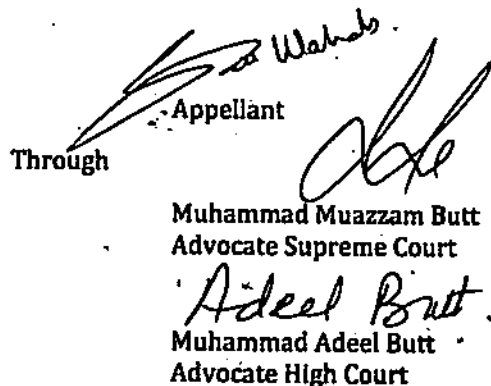 Wahab.
Appellant
Through
Muhammad Muazzam Butt
Advocate Supreme Court
Adeel Butt.
Muhammad Adeel Butt
Advocate High Court